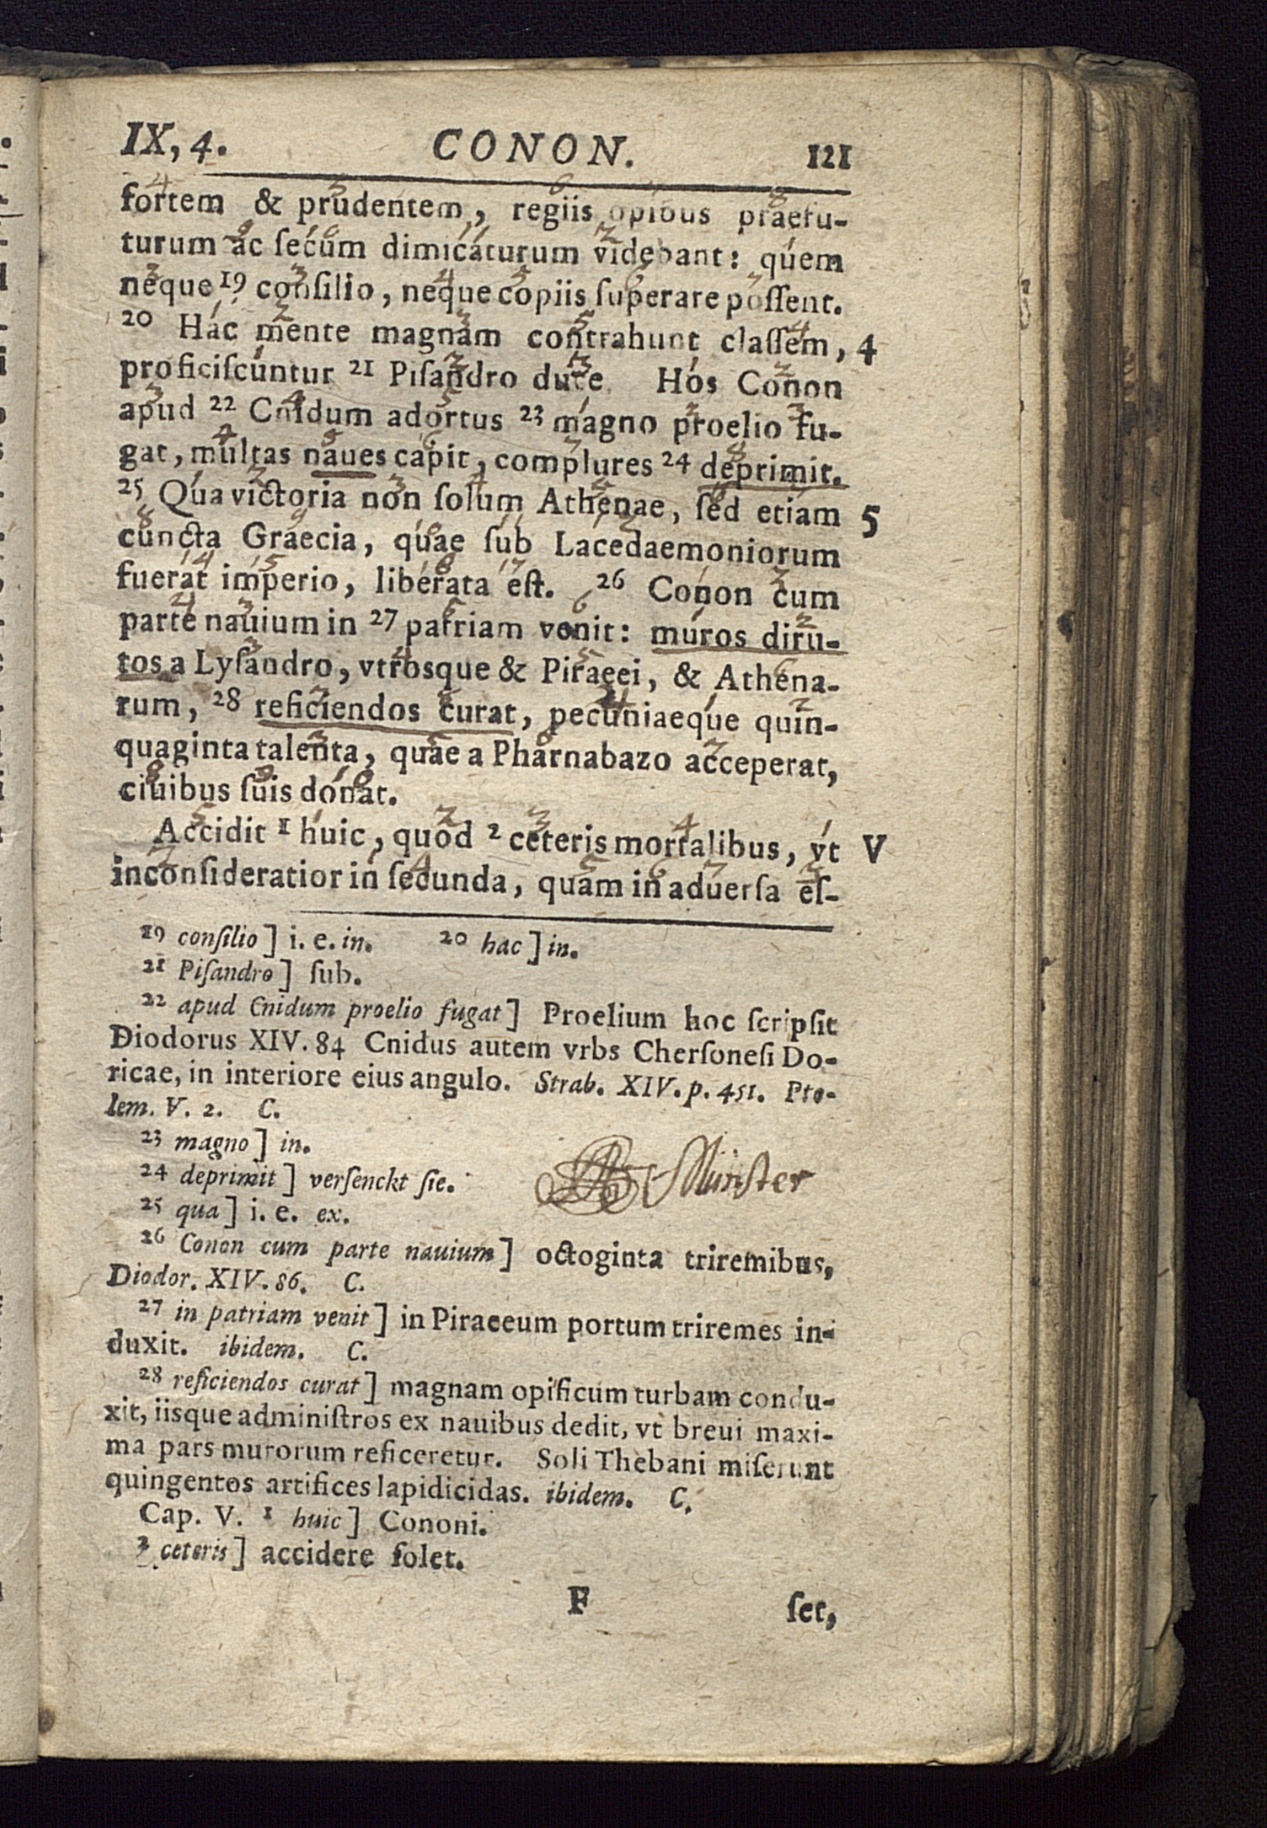 IX, 4. CONON. 121
fortem & prudentem, regiis opibus praefu-
turum ac ſecum dimicaturum videbant: quem
neque 19 conſilio, neque copiis ſuperare poſſent.
20 Hac mente magnam contrahunt claſſem, 4
proficiſcuntur 21 Piſandro duce. Hos Conon
apud 22 Cnidum adortus 23 magno proelio fu-
gat, multas naues capit, complures 24 deprimit.
25 Qua victoria non ſolum Athenae, ſed etiam 5
cuncta Graecia, quae ſub Lacedaemoniorum
fuerat imperio, liberata eſt. 26 Conon cum
parte nauium in 27 patriam venit: muros diru-
tos a Lyſandro, vtrosque & Piraeei, & Athena-
rum, 28 reficiendos curat, pecuniaeque quin-
quaginta talenta, quae a Pharnabazo acceperat,
ciuibus ſuis donat.
Accidit 1 huic, quod 2 ceteris mortalibus, vt V
inconſideratior in ſecunda, quam in aduerſa eſ-
19 conſilio] i. e. in. 20 hac] in.
21 Piſandro] ſub.
22 apud Cnidum proelio fugat] Proelium hoc ſcripſit
Diodorus XIV. 84 Cnidus autem vrbs Cherſoneſi Do-
ricae, in interiore eius angulo. Strab. XIV. p. 451. Pto-
lem. V. 2. C.
23 magno] in.
24 deprimit] verſenckt ſie.
Münſter
25 qua] i. e. ex.
26 Conon cum parte nauium] octoginta triremibus,
Diodor. XIV. 86. C.
27 in patriam venit] in Piraeeum portum triremes in-
duxit. ibidem. C.
28 reficiendos curat] magnam opificum turbam condu-
xit, iisque adminiſtros ex nauibus dedit, vt breui maxi-
ma pars murorum reficeretur. Soli Thebani miſerunt
quingentos artifices lapidicidas. ibidem. C.
Cap. V. 1 huic] Cononi.
2 ceteris] accidere ſolet.
F ſet,